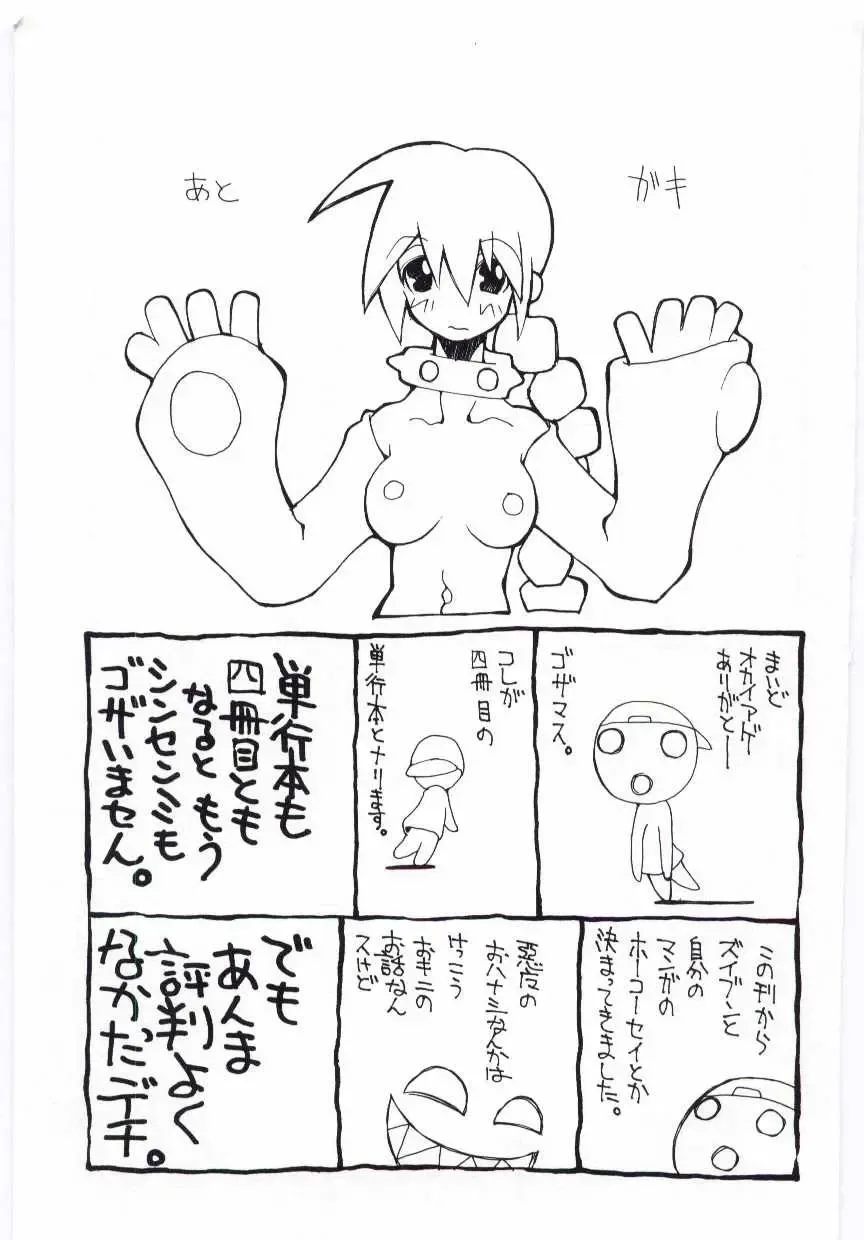 あと
ガキ
まいど
オカイアゲ
ありがとー
ゴザマス。
コレが
四冊目の
単行本とナリます。
単行本も
四冊目とも
なるともう
シンセンミも
ゴザいません。
この刊から
ズイブンと
自分の
マンガの
ホーコーセイとか
決まってきました。
おハナシなんかは
けっこう
おキニの
お話なん
スけど
でも
あんま
評判よく
なかったデチ。